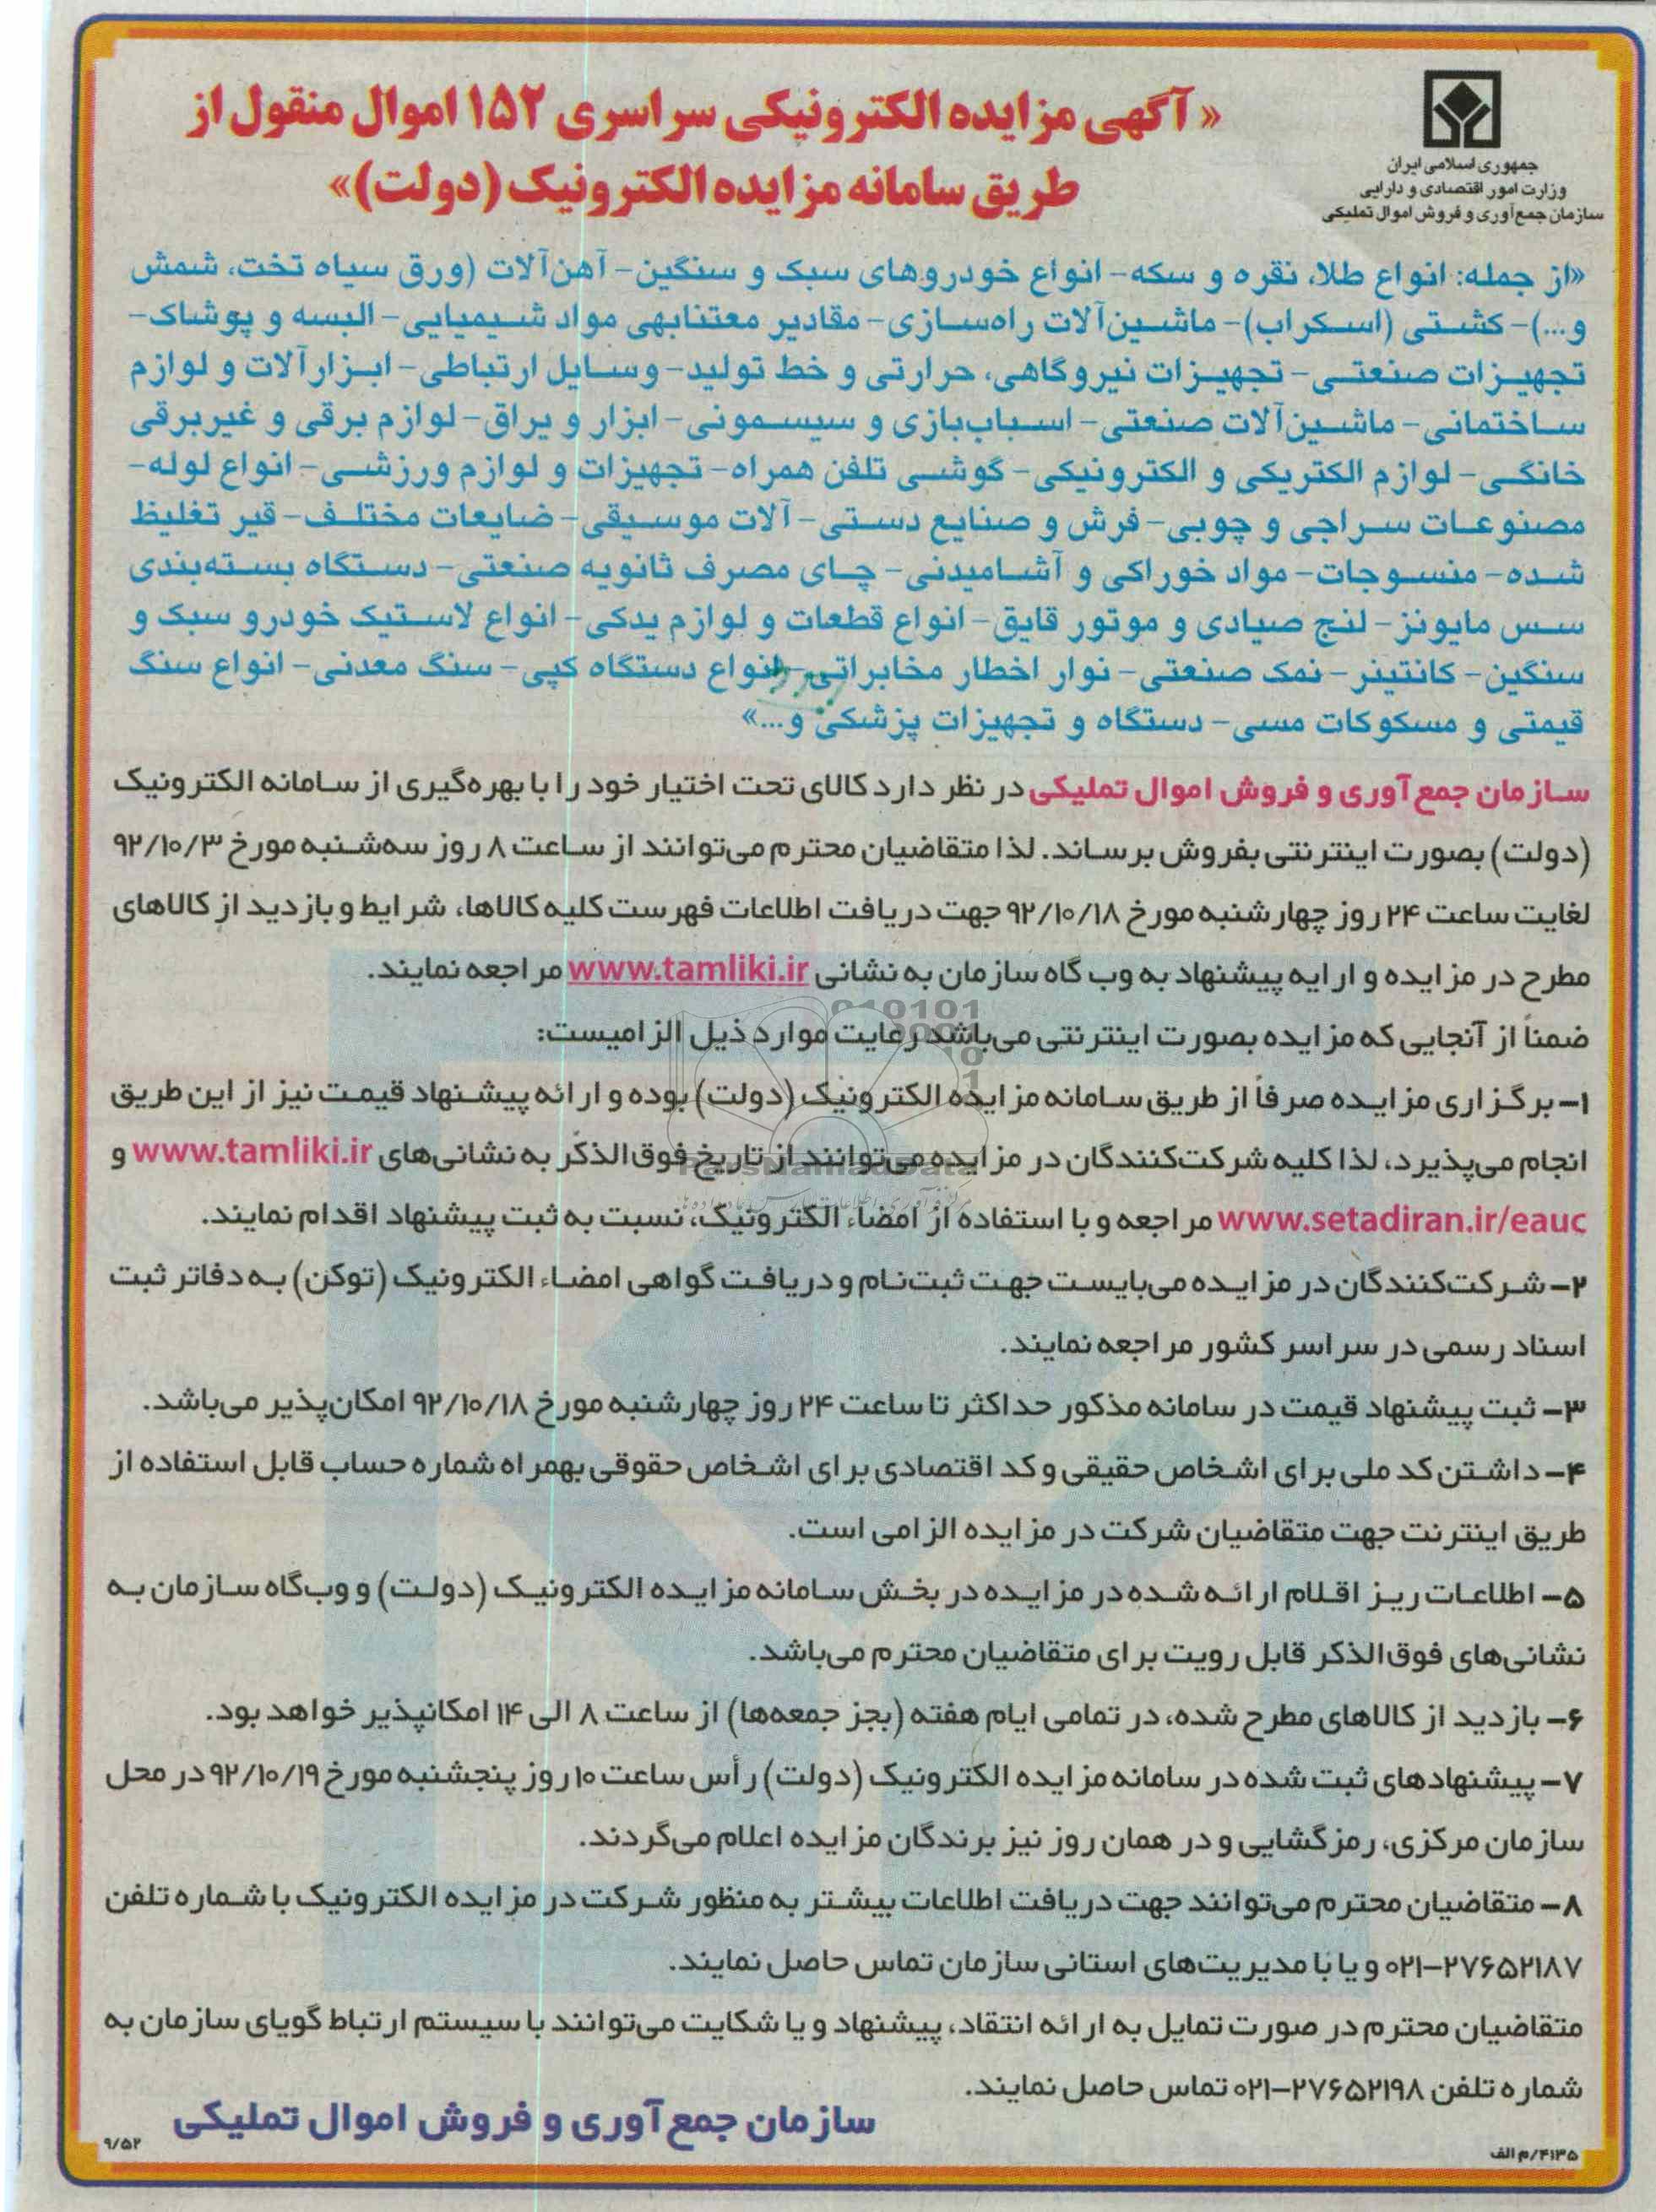 جمهوری اسلامی ایران
وزارت امور اقتصادی و دارایی
سازمان جمع‌آوری و فروش اموال تملیکی
« آگهی مزایده الکترونیکی سراسری ۱۵۲ اموال منقول از
طریق سامانه مزایده الکترونیک (دولت)»
«از جمله: انواع طلا، نقره و سکه- انواع خودروهای سبک و سنگین- آهن‌آلات (ورق سیاه تخت، شمش
و...)- کشتی (اسکراب)- ماشین‌آلات راهسازی- مقادیر معتنابهی مواد شیمیایی- البسه و پوشاک-
تجهیزات صنعتی- تجهیزات نیروگاهی، حرارتی و خط تولید- وسایل ارتباطی- ابزارآلات و لوازم
ساختمانی- ماشین‌آلات صنعتی- اسباب‌بازی و سیسمونی- ابزار و یراق- لوازم برقی و غیربرقی
خانگی- لوازم الکتریکی و الکترونیکی- گوشی تلفن همراه- تجهیزات و لوازم ورزشی- انواع لوله-
مصنوعات سراجی و چوبی- فرش و صنایع دستی- آلات موسیقی- ضایعات مختلف- قیر تغلیظ
شده- منسوجات- مواد خوراکی و آشامیدنی- چای مصرف ثانویه صنعتی- دستگاه بسته‌بندی
سس مایونز- لنج صیادی و موتور قایق- انواع قطعات و لوازم یدکی- انواع لاستیک خودرو سبک و
سنگین- کانتینر- نمک صنعتی- نوار اخطار مخابراتی- انواع دستگاه کپی- سنگ معدنی- انواع سنگ
قیمتی و مسکوکات مسی- دستگاه و تجهیزات پزشکی و...»
سازمان جمع‌آوری و فروش اموال تملیکی در نظر دارد کالای تحت اختیار خود را با بهره‌گیری از سامانه الکترونیک
(دولت) بصورت اینترنتی بفروش برساند. لذا متقاضیان محترم می‌توانند از ساعت ۸ روز سه‌شنبه مورخ ۹۲/۱۰/۳
لغایت ساعت ۲۴ روز چهارشنبه مورخ ۹۲/۱۰/۱۸ جهت دریافت اطلاعات فهرست کلیه کالاها، شرایط و بازدید از کالاهای
مطرح در مزایده و ارایه پیشنهاد به وب گاه سازمان به نشانی www.tamliki.ir مراجعه نمایند.
ضمناً از آنجایی که مزایده بصورت اینترنتی می‌باشد رعایت موارد ذیل الزامیست:
۱- برگزاری مزایده صرفاً از طریق سامانه مزایده الکترونیک (دولت) بوده و ارائه پیشنهاد قیمت نیز از این طریق
انجام می‌پذیرد، لذا کلیه شرکت‌کنندگان در مزایده می‌توانند از تاریخ فوق‌الذکر به نشانی‌های www.tamliki.ir و
www.setadiran.ir/eauc مراجعه و با استفاده از امضاء الکترونیک، نسبت به ثبت پیشنهاد اقدام نمایند.
۲- شرکت‌کنندگان در مزایده می‌بایست جهت ثبت‌نام و دریافت گواهی امضاء الکترونیک (توکن) به دفاتر ثبت
اسناد رسمی در سراسر کشور مراجعه نمایند.
۳- ثبت پیشنهاد قیمت در سامانه مذکور حداکثر تا ساعت ۲۴ روز چهارشنبه مورخ ۹۲/۱۰/۱۸ امکان‌پذیر می‌باشد.
۴- داشتن کد ملی برای اشخاص حقیقی و کد اقتصادی برای اشخاص حقوقی بهمراه شماره حساب قابل استفاده از
طریق اینترنت جهت متقاضیان شرکت در مزایده الزامی است.
۵- اطلاعات ریز اقلام ارائه شده در مزایده در بخش سامانه مزایده الکترونیک (دولت) و وب‌گاه سازمان به
نشانی‌های فوق‌الذکر قابل رویت برای متقاضیان محترم می‌باشد.
۶- بازدید از کالاهای مطرح شده، در تمامی ایام هفته (بجز جمعه‌ها) از ساعت ۸ الی ۱۴ امکانپذیر خواهد بود.
۷- پیشنهادهای ثبت شده در سامانه مزایده الکترونیک (دولت) رأس ساعت ۱۰ روز پنجشنبه مورخ ۹۲/۱۰/۱۹ در محل
سازمان مرکزی، رمزگشایی و در همان روز نیز برندگان مزایده اعلام می‌گردند.
۸- متقاضیان محترم می‌توانند جهت دریافت اطلاعات بیشتر به منظور شرکت در مزایده الکترونیک با شماره تلفن
۰۲۱-۲۷۶۵۲۱۸۷ و یا با مدیریت‌های استانی سازمان تماس حاصل نمایند.
متقاضیان محترم در صورت تمایل به ارائه انتقاد، پیشنهاد و یا شکایت می‌توانند با سیستم ارتباط گویای سازمان به
شماره تلفن ۰۲۱-۲۷۶۵۲۱۹۸ تماس حاصل نمایند.
سازمان جمع‌آوری و فروش اموال تملیکی
۴۱۳۵/م الف
۹/۵۲